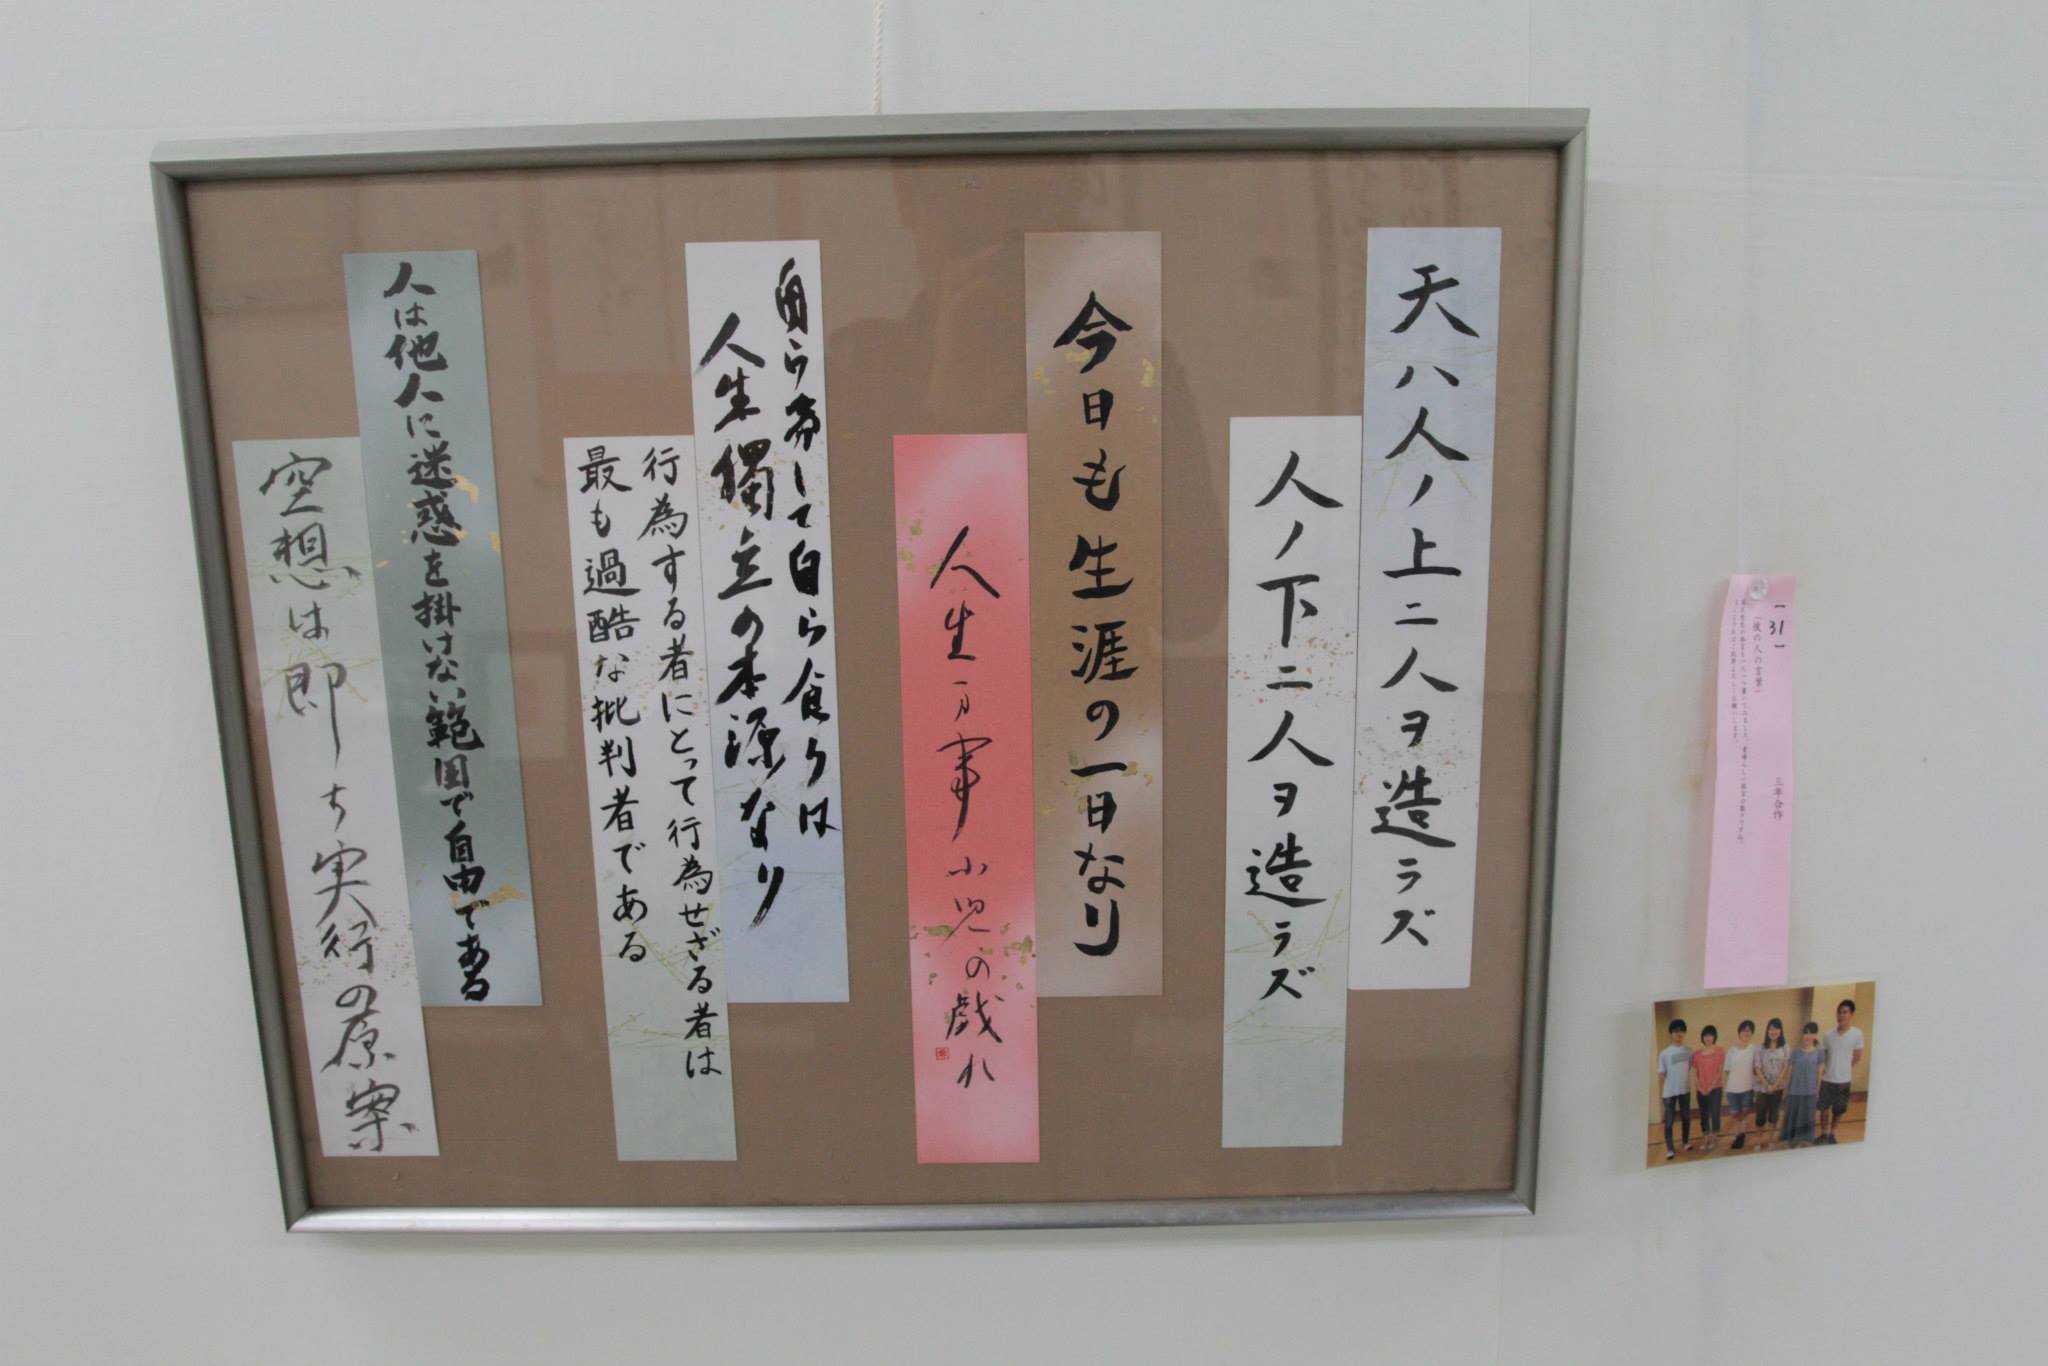 天ハ人ノ上ニ人ヲ造ラズ
人ノ下ニ人ヲ造ラズ
今日も生涯の一日なり
人生万事小児の戯れ
自ら労して自ら食うは
人生獨立の本源なり
行為する者にとって行為せざる者は
最も過酷な批判者である
人は他人に迷惑を掛けない範囲で自由である
空想は即ち実行の原案
【31】
三年合作